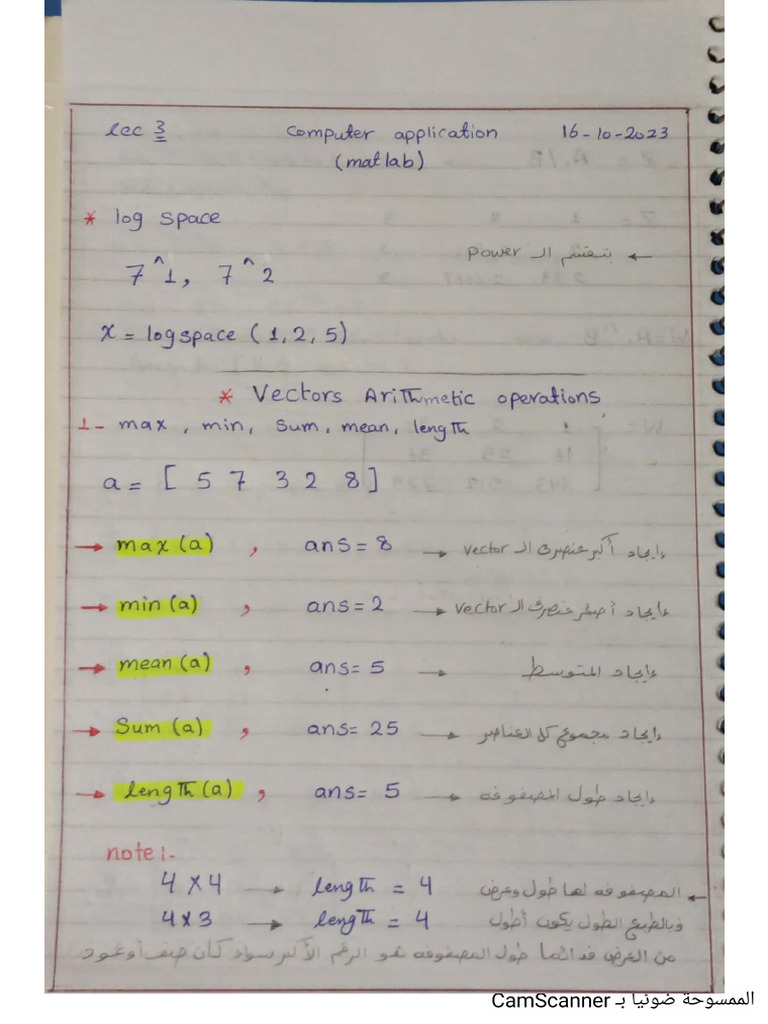 lec 3 Computer application 16-10-2023
(matlab)
* log space
7^1, 7^2 ← بتقسم الـ power
x = logspace (1, 2, 5)
* Vectors Arithmetic operations
1- max, min, Sum, mean, length
a = [ 5 7 3 2 8 ]
→ max (a) , ans = 8 → إيجاد أكبر عنصر في الـ vector
→ min (a) , ans = 2 → إيجاد أصغر عنصر في الـ vector
→ mean (a) , ans = 5 → إيجاد المتوسط
→ Sum (a) , ans = 25 → إيجاد مجموع كل العناصر
→ length (a) , ans = 5 → إيجاد طول المصفوفه
note:-
4 x 4 → length = 4 ← المصفوفه لها طول وعرض
4 x 3 → length = 4 وبالطبع الطول يكون أطول
من العرض فدائما طول المصفوفه هو الرقم الأكبر سواء كان صف أو عمود
الممسوحة ضوئيا بـ CamScanner